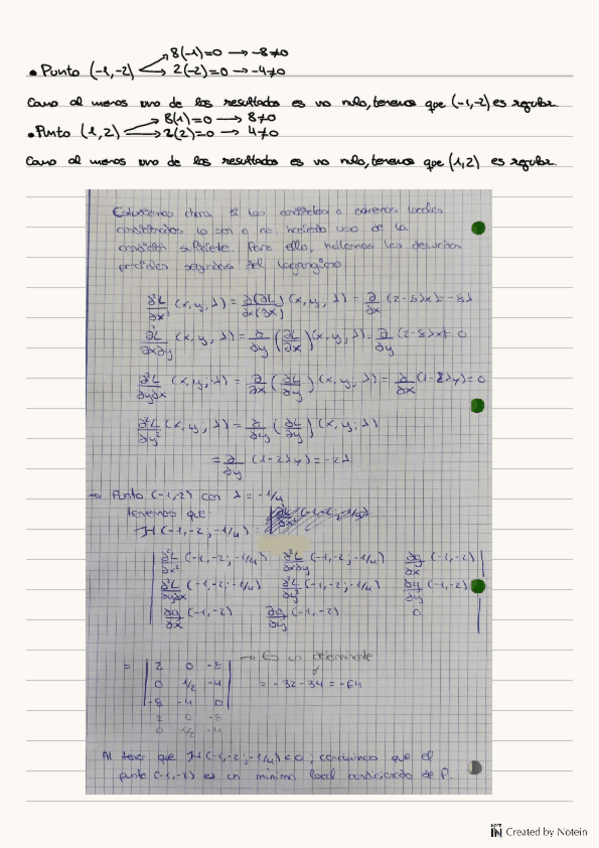 8(-1)=0 → -8≠0
• Punto (-1,-2) 2(-2)=0 → -4≠0
Como al menos uno de los resultados es no nulo, tenemos que (-1,-2) es regular.
8(1)=0 → 8≠0
• Punto (1,2) 2(2)=0 → 4≠0
Como al menos uno de los resultados es no nulo, tenemos que (1,2) es regular.
Estudiamos ahora si los candidatos a extremos locales
condicionados lo son o no, haciendo uso de la
condición suficiente. Para ello, hallamos las derivadas
parciales segundas del lagrangiano
∂²L/∂x² (x,y,λ) = ∂/∂x (∂L/∂x) (x,y,λ) = ∂/∂x (2-8λx) = -8λ
∂²L/∂x∂y (x,y,λ) = ∂/∂y (∂L/∂x) (x,y,λ) = ∂/∂y (2-8λx) = 0
∂²L/∂y∂x (x,y,λ) = ∂/∂x (∂L/∂y) (x,y,λ) = ∂/∂x (1-2λy) = 0
∂²L/∂y² (x,y,λ) = ∂/∂y (∂L/∂y) (x,y,λ)
= ∂/∂y (1-2λy) = -2λ
→ Punto (-1,-2) con λ = -1/4
tenemos que
H(-1,-2;-1/4) =
∂²L/∂x² (-1,-2;-1/4) ∂²L/∂x∂y (-1,-2;-1/4) ∂g/∂x (-1,-2)
∂²L/∂y∂x (-1,-2;-1/4) ∂²L/∂y² (-1,-2;-1/4) ∂g/∂y (-1,-2)
∂g/∂x (-1,-2) ∂g/∂y (-1,-2) 0
→ Es un determinante
= | 2 0 -8 |
| 0 1/2 -4 | = -32-34 = -64
| -8 -4 0 |
2 0 -8
0 1/2 -4
Al tener que H(-1,-2;-1/4)<0, concluimos que el
punto (-1,-2) es un mínimo local condicionado de P.
NOTE IN Created by Notein